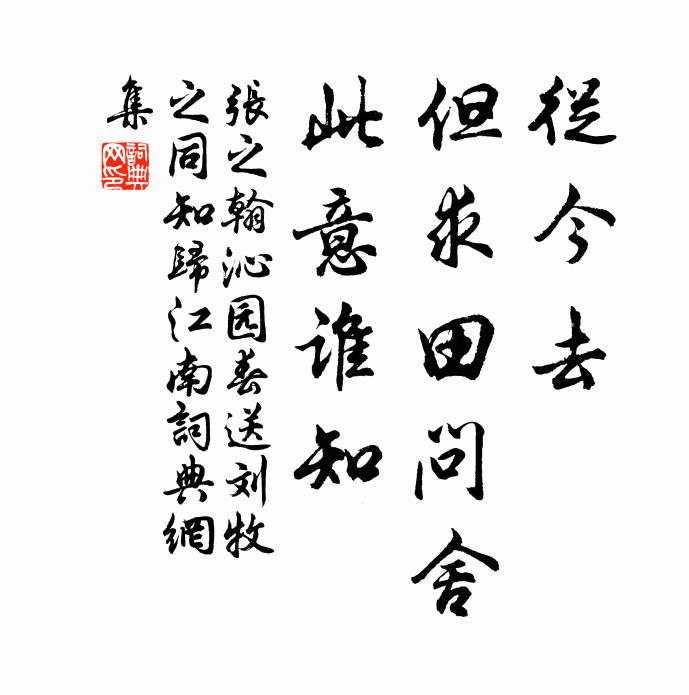 從今去
但求田問舍
此意誰知
張之翰沁园春送刘牧
之同知歸江南詞典網
集
詞典網印